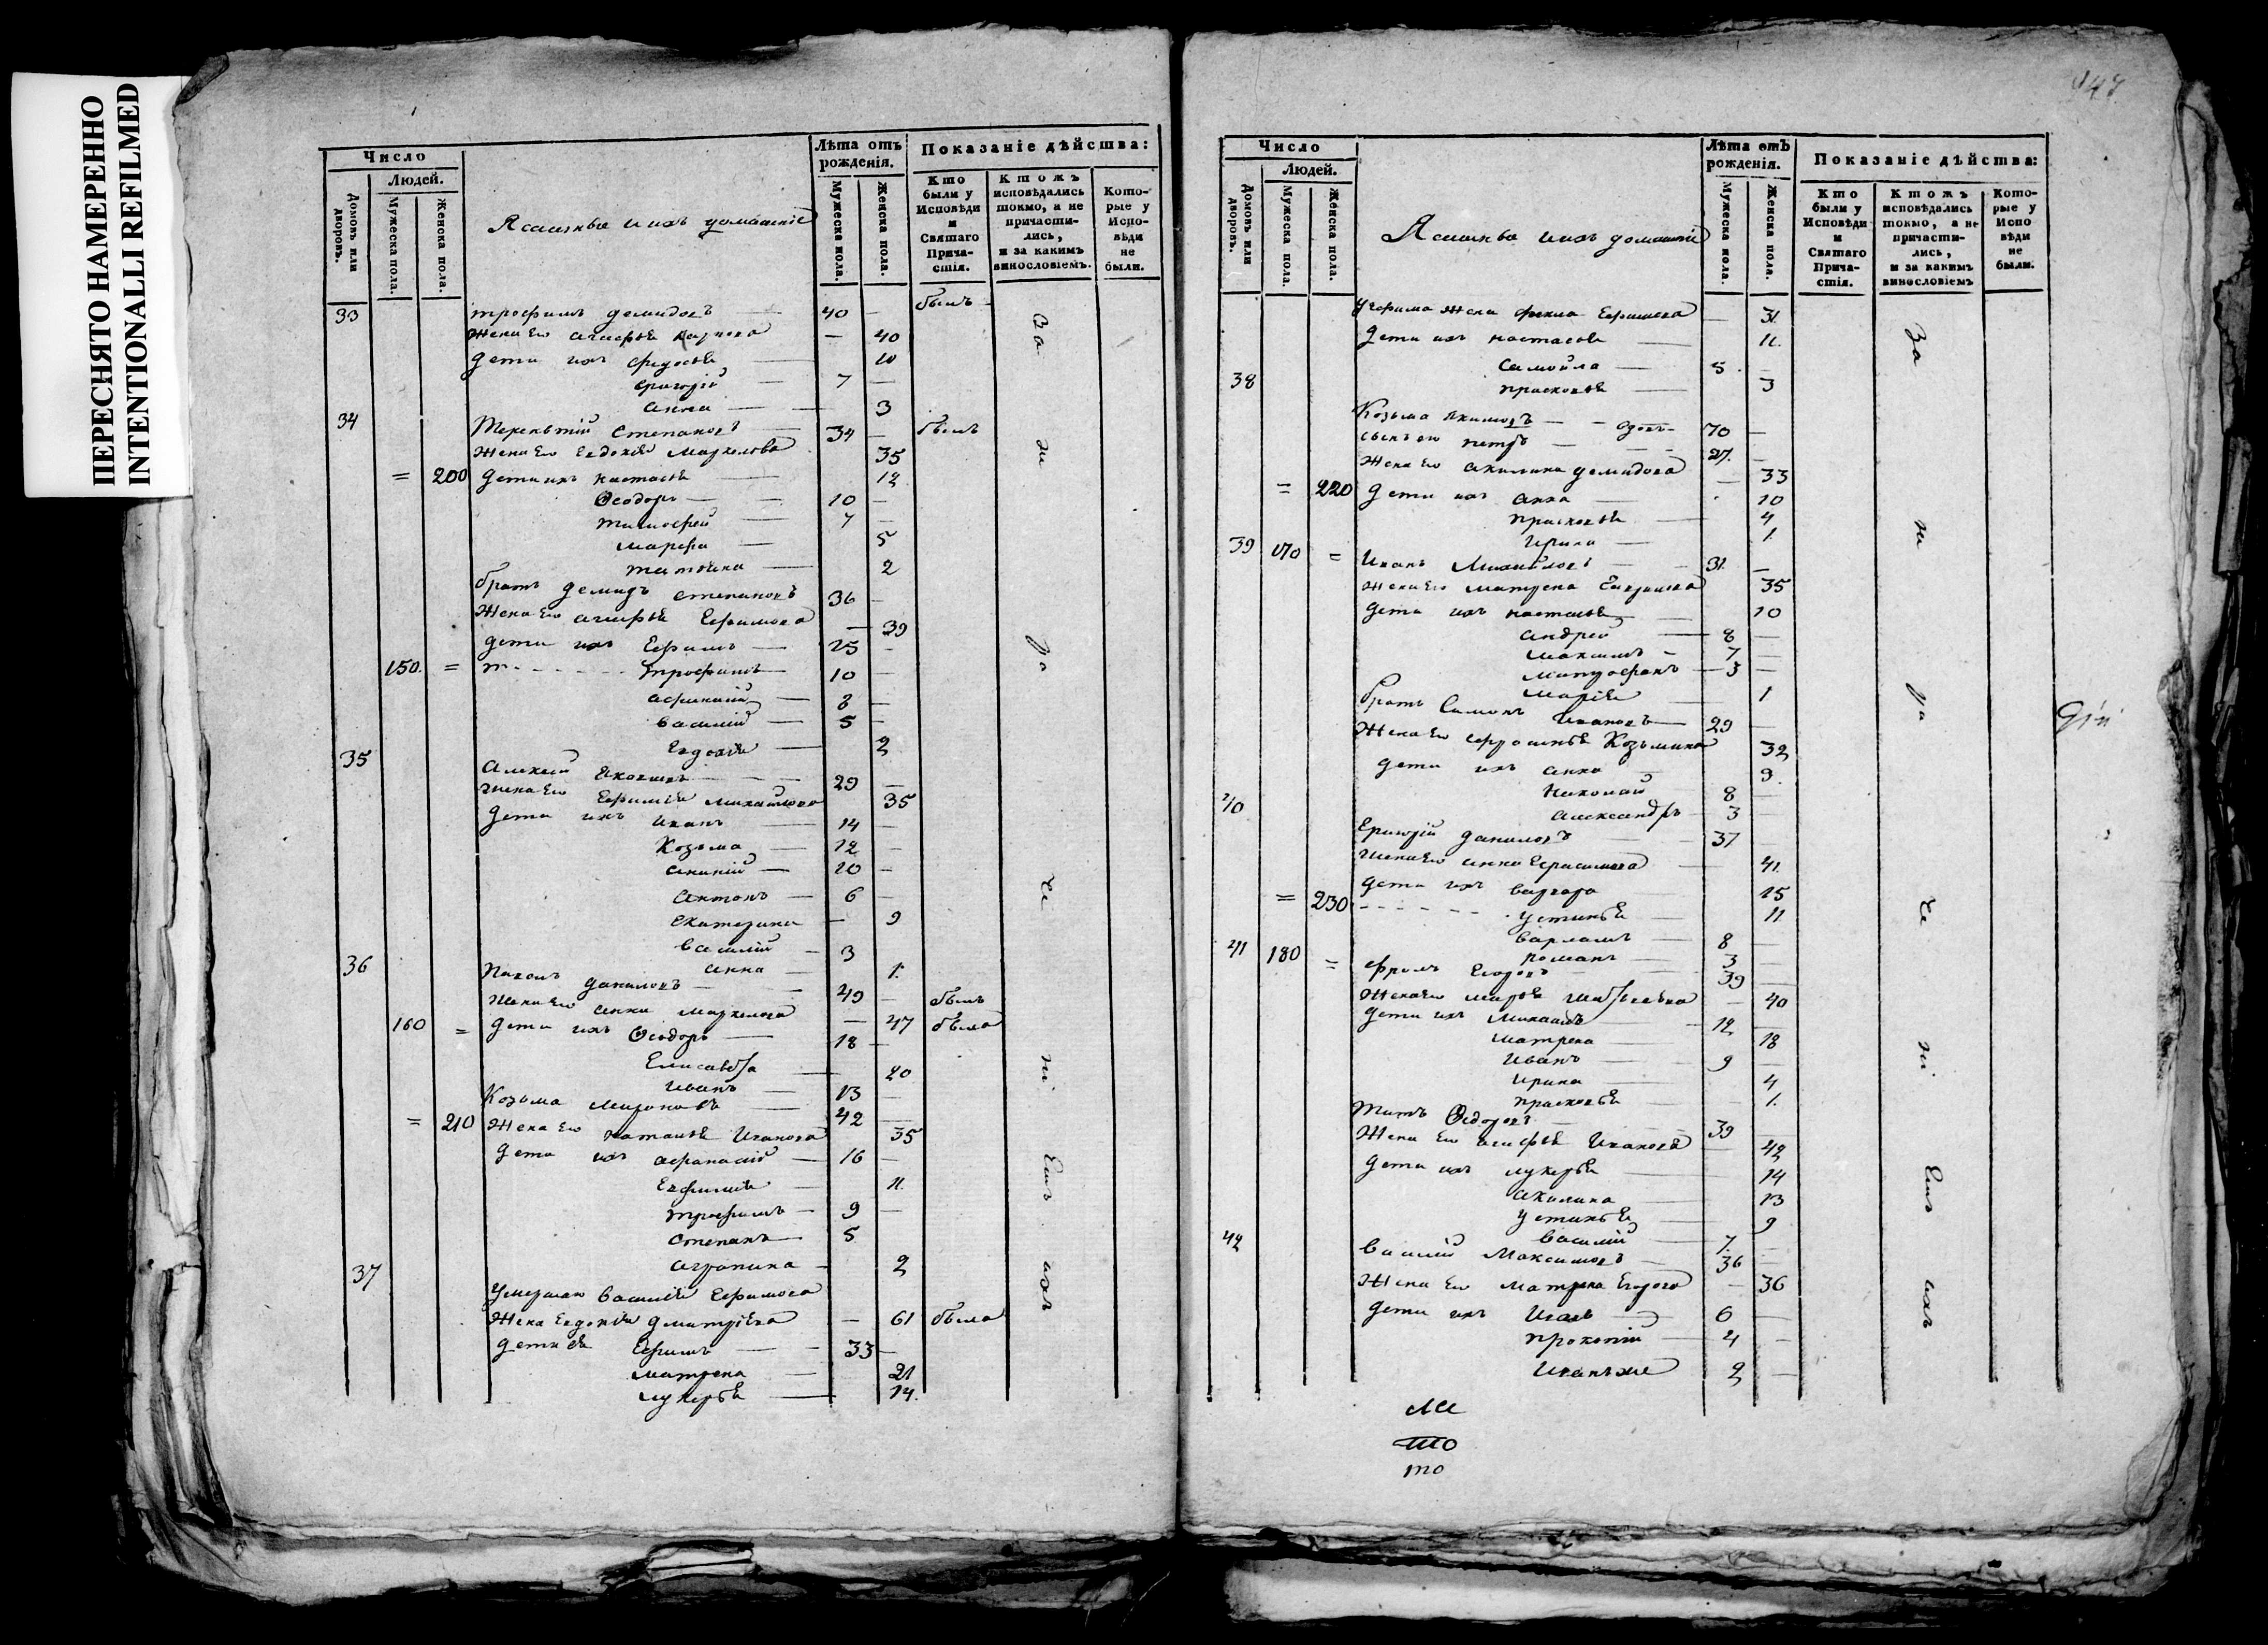 ПЕРЕСНЯТО НАМЕРЕННО
INTENTIONALLI REFILMED
Число
Людей.
Домовъ или дворовъ.
Мужеска пола.
Женска пола.
ихъ домашніе
Лѣта отъ рожденія.
Мужеска пола.
Женска пола.
Показаніе дѣйства:
Кто были у Исповѣди и Святаго Прича-стія.
Ктожъ исповѣдались токмо, а не причасти-лись, и за какимъ винословіемъ.
Кото-рые у Испо-вѣди не были.
33 трофимъ демидовъ — 40 — былъ
жена его агафья — 40
дети ихъ федосья — 10
григорій — 7 —
анна — 3
34 Терентій Степановъ — 34 — былъ
жена его Евдокія Маркелова 35
= 200 дети ихъ настасья — 12
Ѳеодоръ — 10 —
тимофей — 7 —
марфа — 5
татьяна — 2
братъ демидъ степановъ 36 —
жена его агафья Ефимова — 39
дети ихъ Ефимъ — 15 —
150. = трофимъ 10 —
8 —
василій — 5 —
Евдокія — 2
35 Алексей Яковлевъ 29 —
жена его Ефимія Михайлова 35
дети ихъ иванъ — 14 —
Козьма — 12 —
ананій — 10 —
антонъ — 6 —
екатерина — 9
василій — 3
анна — 1.
36 Пахомъ даниловъ — 49 — былъ
жена его анна Маркелова — 47 была
160 = дети ихъ Ѳеодоръ — 18 —
Елисавета — 20
иванъ — 13 —
Козьма Мироновъ — 42 —
= 210 жена его наталья Иванова 35
дети ихъ афанасій — 16 —
Евфимія — 11.
трофимъ — 9 —
степанъ — 5
аграпина — 2
37 Умершаго василія Ефимова
жена Евдокія дмитріева — 61 была
дети ея Ефимъ — 33 —
матрена — 21
лукерья — 14.
За
не
ра
че
ні
емъ
ихъ
147
Число
Людей.
Домовъ или дворовъ.
Мужеска пола.
Женска пола.
ихъ домашніе
Лѣта отЪ рожденія.
Мужеска пола.
Женска пола.
Показаніе дѣйства:
Кто были у Исповѣди и Святаго Прича-стія.
Ктожъ исповѣдались токмо, а не причасти-лись, и за какимъ винословіемъ
Кото-рые у Испо вѣди не были.
у Ефима жена фекла Ефимова — 31.
дети ихъ настасья — 11.
самойла — 5. —
прасковья — 3
38 Козьма Якимовъ — вдовъ 70 —
сынъ его петръ — 27. —
жена его акилина демидова — 33
= 220 дети ихъ анна 10
прасковья — 4
ирина — 1
39 170 = Иванъ Михайловъ — 31. —
жена его матрена 35
дети ихъ настасья 10
андрей — 8 —
максимъ — 7 —
митрофанъ — 3 —
марія — 1
братъ Симонъ Ивановъ — 29 —
жена его ефросинья Козьмина 32
дети ихъ анна 9.
николай 8 —
александръ 3 —
40 Григорій даниловъ 37
жена его анна Герасимова — 41.
дети ихъ варвара — 15
= 230 устинья — 11
варламъ — 8 —
романъ — 3 —
41 180 = фролъ Егоровъ 39 —
жена его марфа — 40
дети ихъ Михаилъ — 12 —
матрена — 18
иванъ — 9 —
ирина — 4
прасковья — 1.
титъ Ѳедоровъ — 39
жена его агафья Иванова — 42
дети ихъ лукерья — 14
акилина — 13
устинья — 9
василій — 7. —
42 Василій Максимовъ — 36 —
жена его матрена Егорова — 36
дети ихъ Иванъ — 6 —
прокопій — 4 —
иванъ же 2 —
За
не
ра
че
ні
емъ
ихъ
то